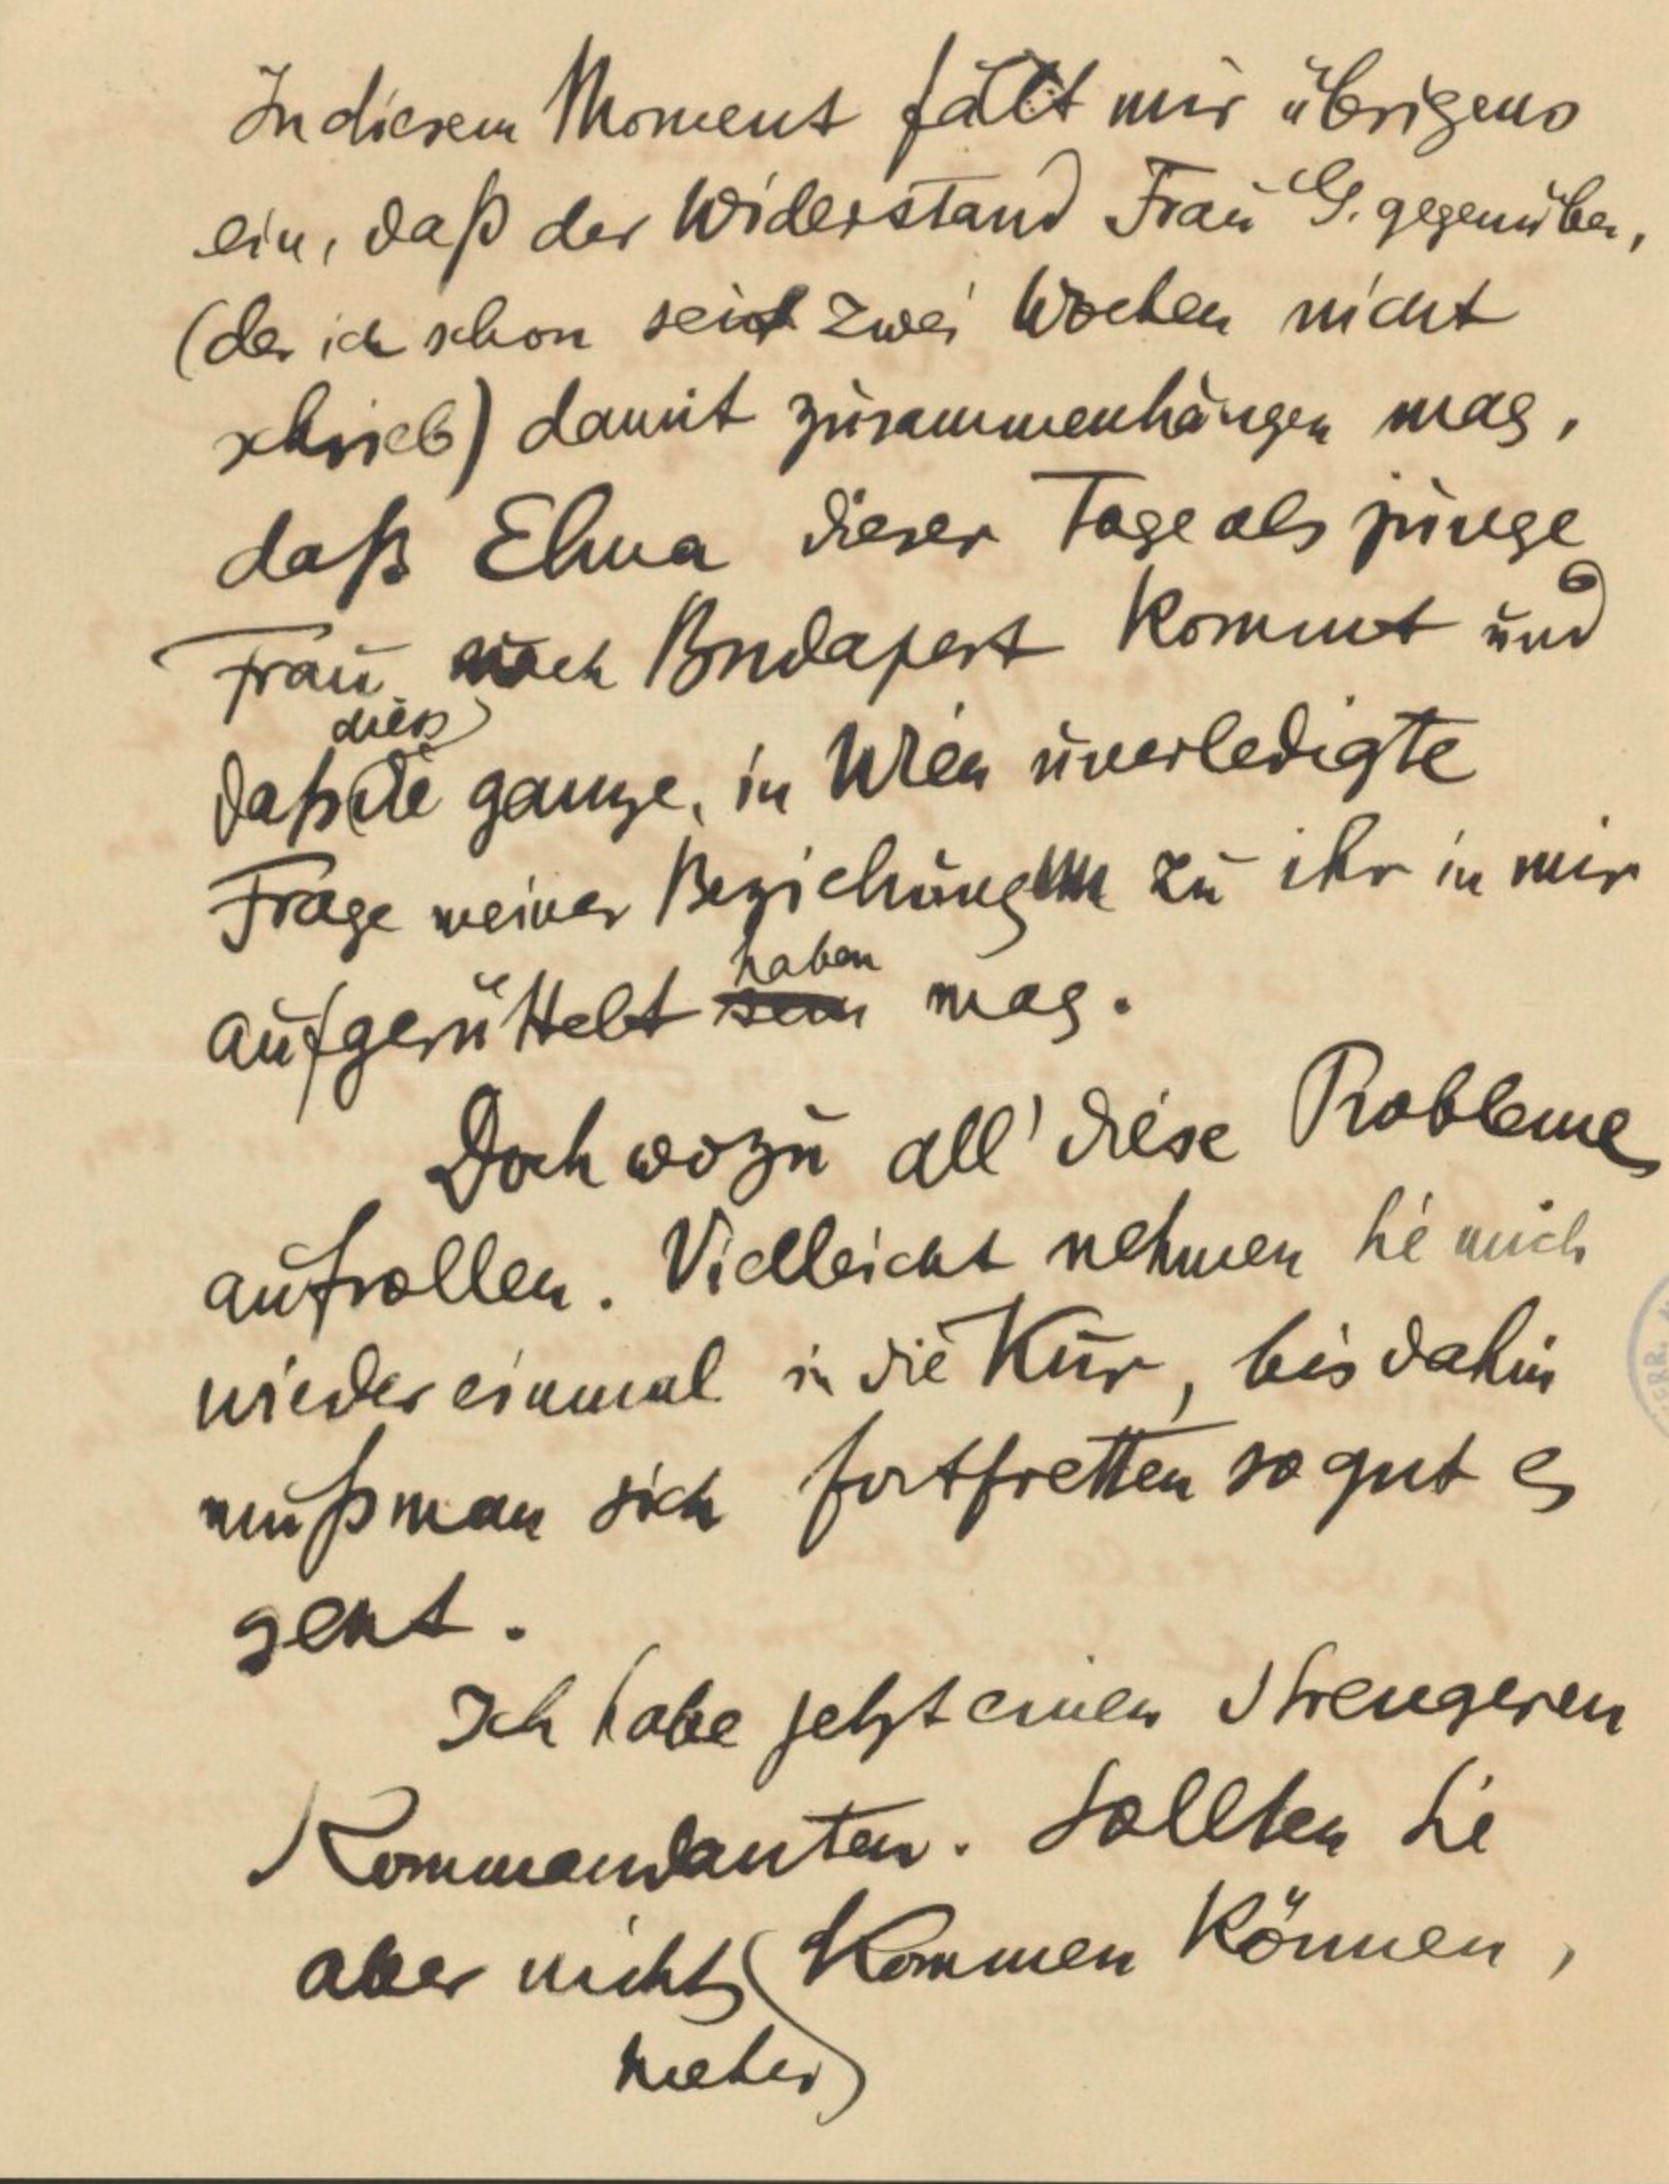 In diesem Moment fällt mir übrigens
ein, daß der Widerstand Frau G. gegenüber,
(der ich schon seit zwei Wochen nicht
schrieb) damit zusammenhängen mag,
daß Elma dieser Tage als junge
Frau nach Budapest kommt und
dies
daß die ganze, in Wien unerledigte
Frage meiner Beziehungen zu ihr in mir
haben
aufgerüttelt sein mag.
Doch wozu all' diese Probleme
aufrollen. Vielleicht nehmen Sie mich
wieder einmal in die Kur, bis dahin
muß man sich fortfretten so gut es
geht.
Ich habe jetzt einen strengeren
Kommandanten. Sollten Sie
aber nicht kommen können,